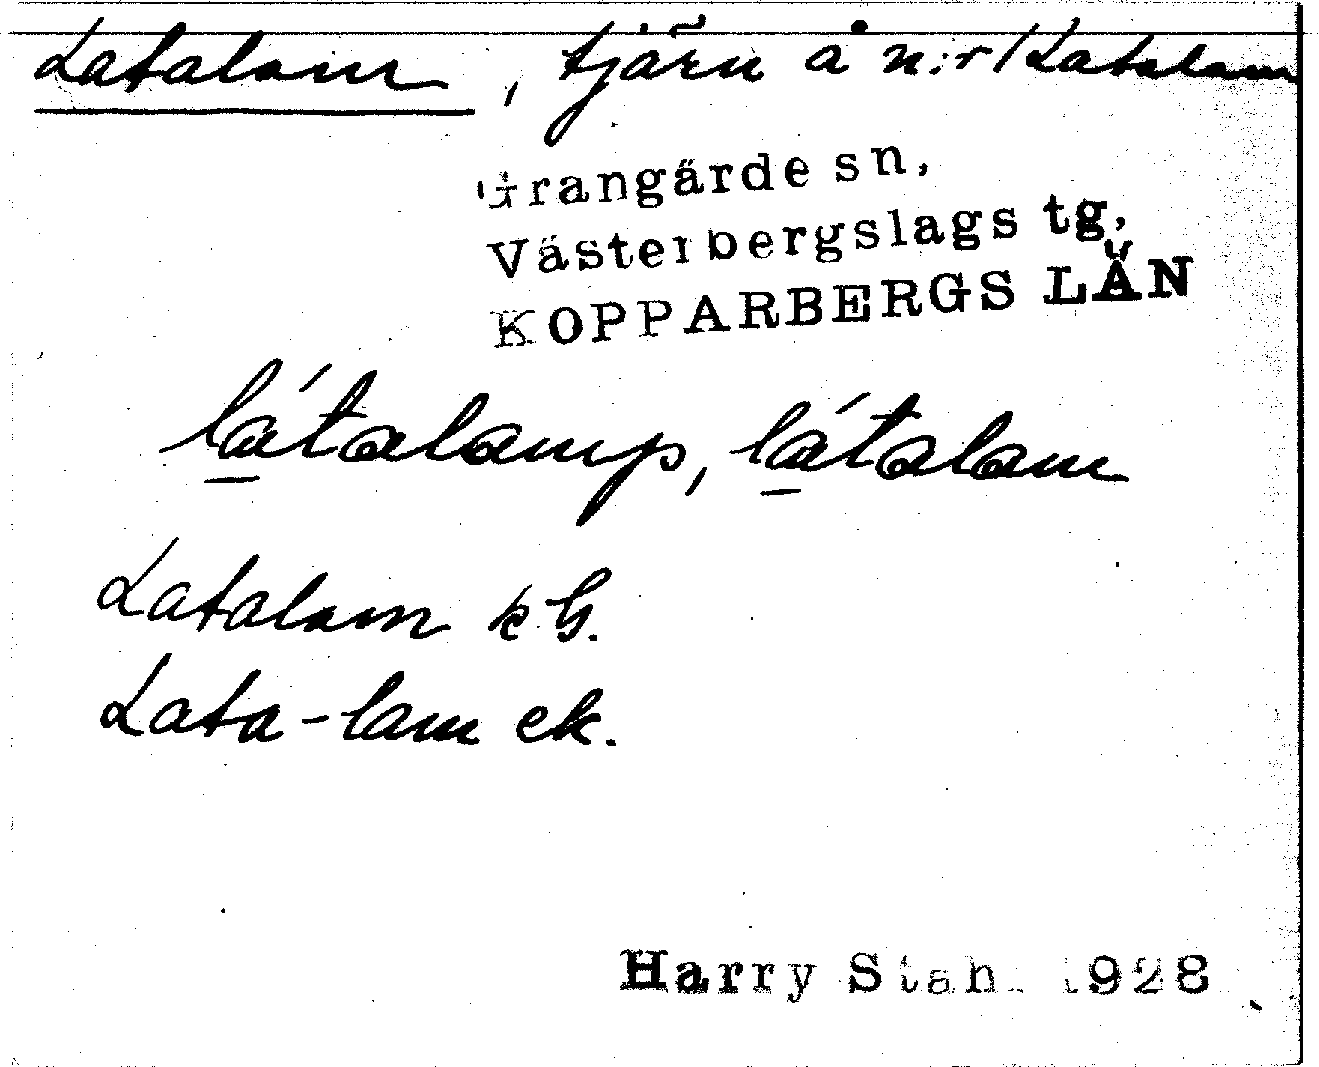 Latalam, tjärn å n:r / Latalam
Grangärde sn,
Västerbergslags tg,
KOPPARBERGS LÄN
látalamp, látalam
Latalam kG.
Lata-lam ek.
Harry Stahl 1928